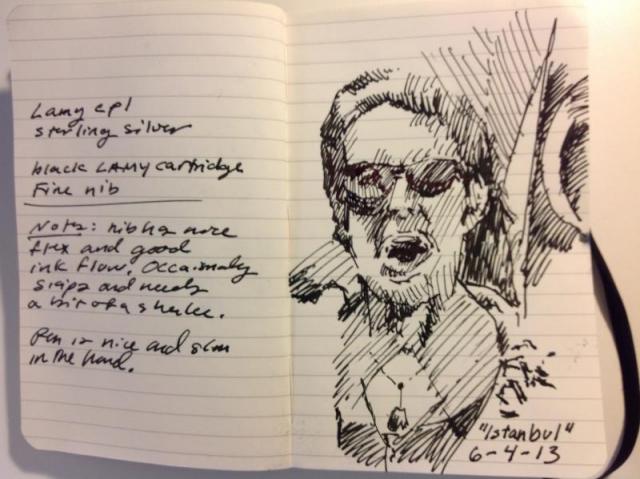 Lamy cp1
sterling silver
black LAMY cartridge
Fine nib
Notes: nib has more
flex and good
ink flow. Occasionally
skips and needs
a bit of a shake.
Pen is nice and slim
in the hand.
"Istanbul"
6-4-13